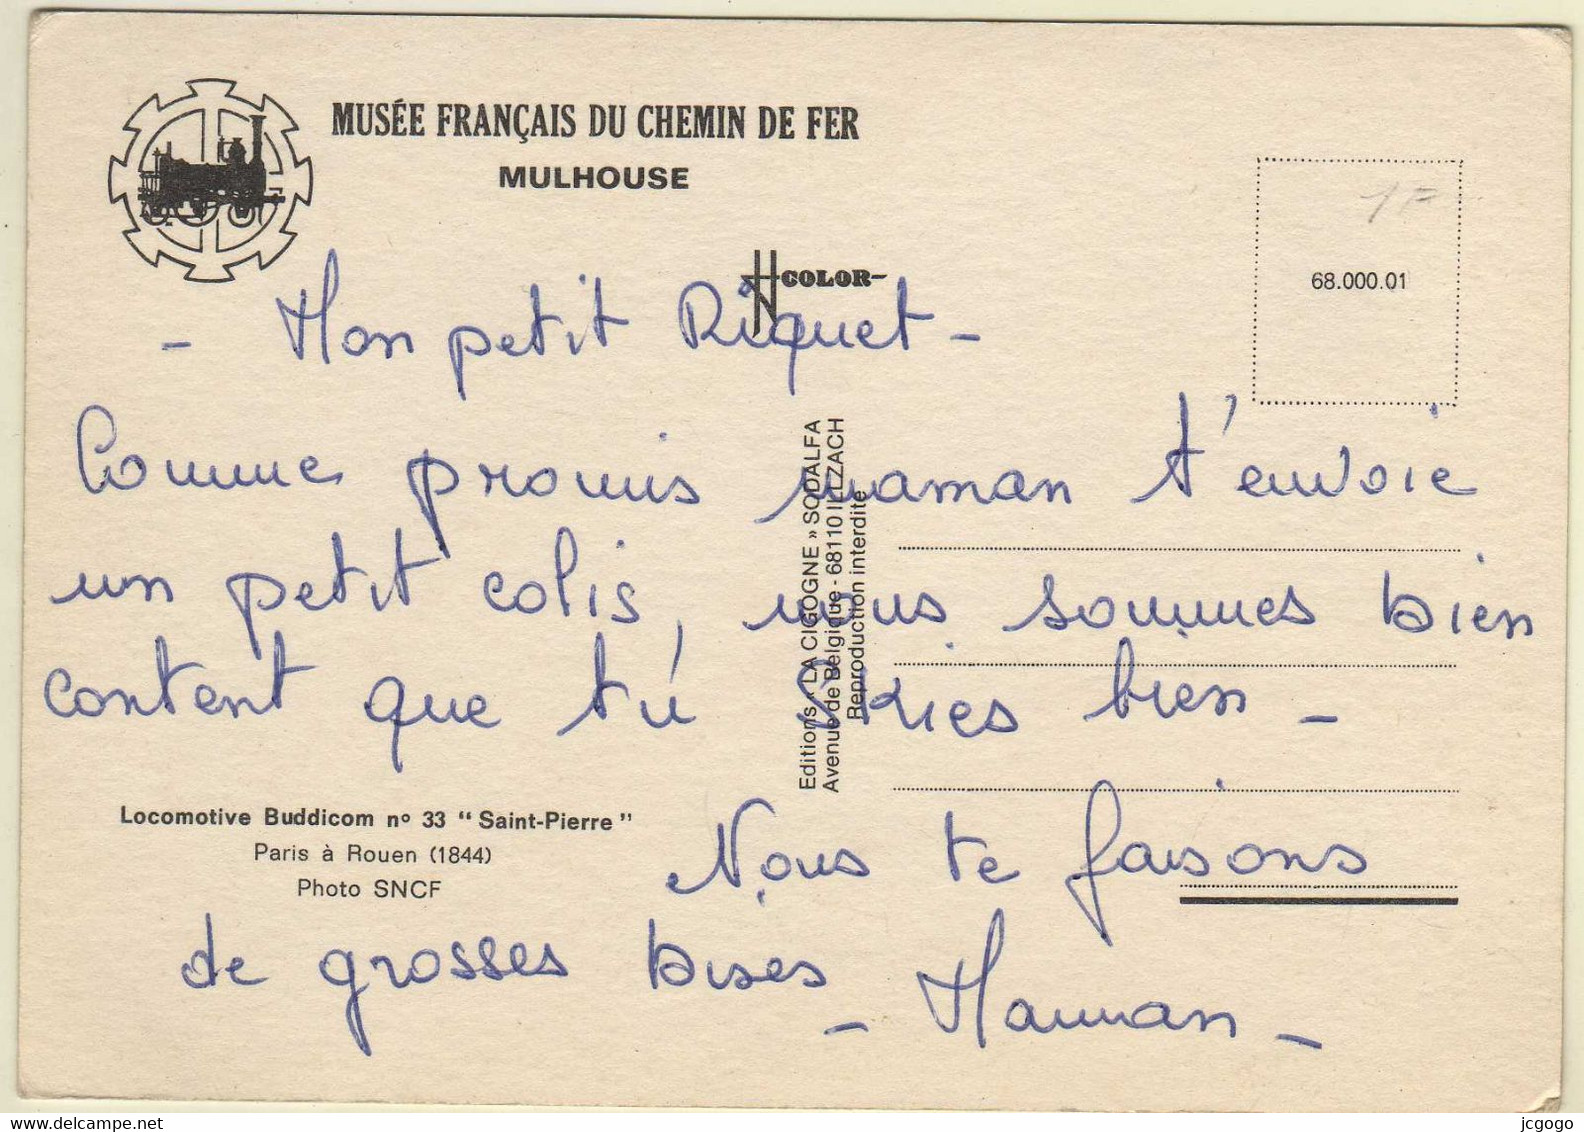 MUSÉE FRANÇAIS DU CHEMIN DE FER
MULHOUSE
1F
68.000.01
COLOR
- Mon petit Riquet -
Comme promis maman t'envoie
un petit colis, nous sommes bien
content que tu skies bien -
Editions « LA CIGOGNE » SODALFA
Avenue de Belgique - 68110 ILLZACH
Reproduction interdite
Locomotive Buddicom nº 33 "Saint-Pierre"
Paris à Rouen (1844)
Photo SNCF
Nous te faisons
de grosses bises
- Maman -
jcgogo